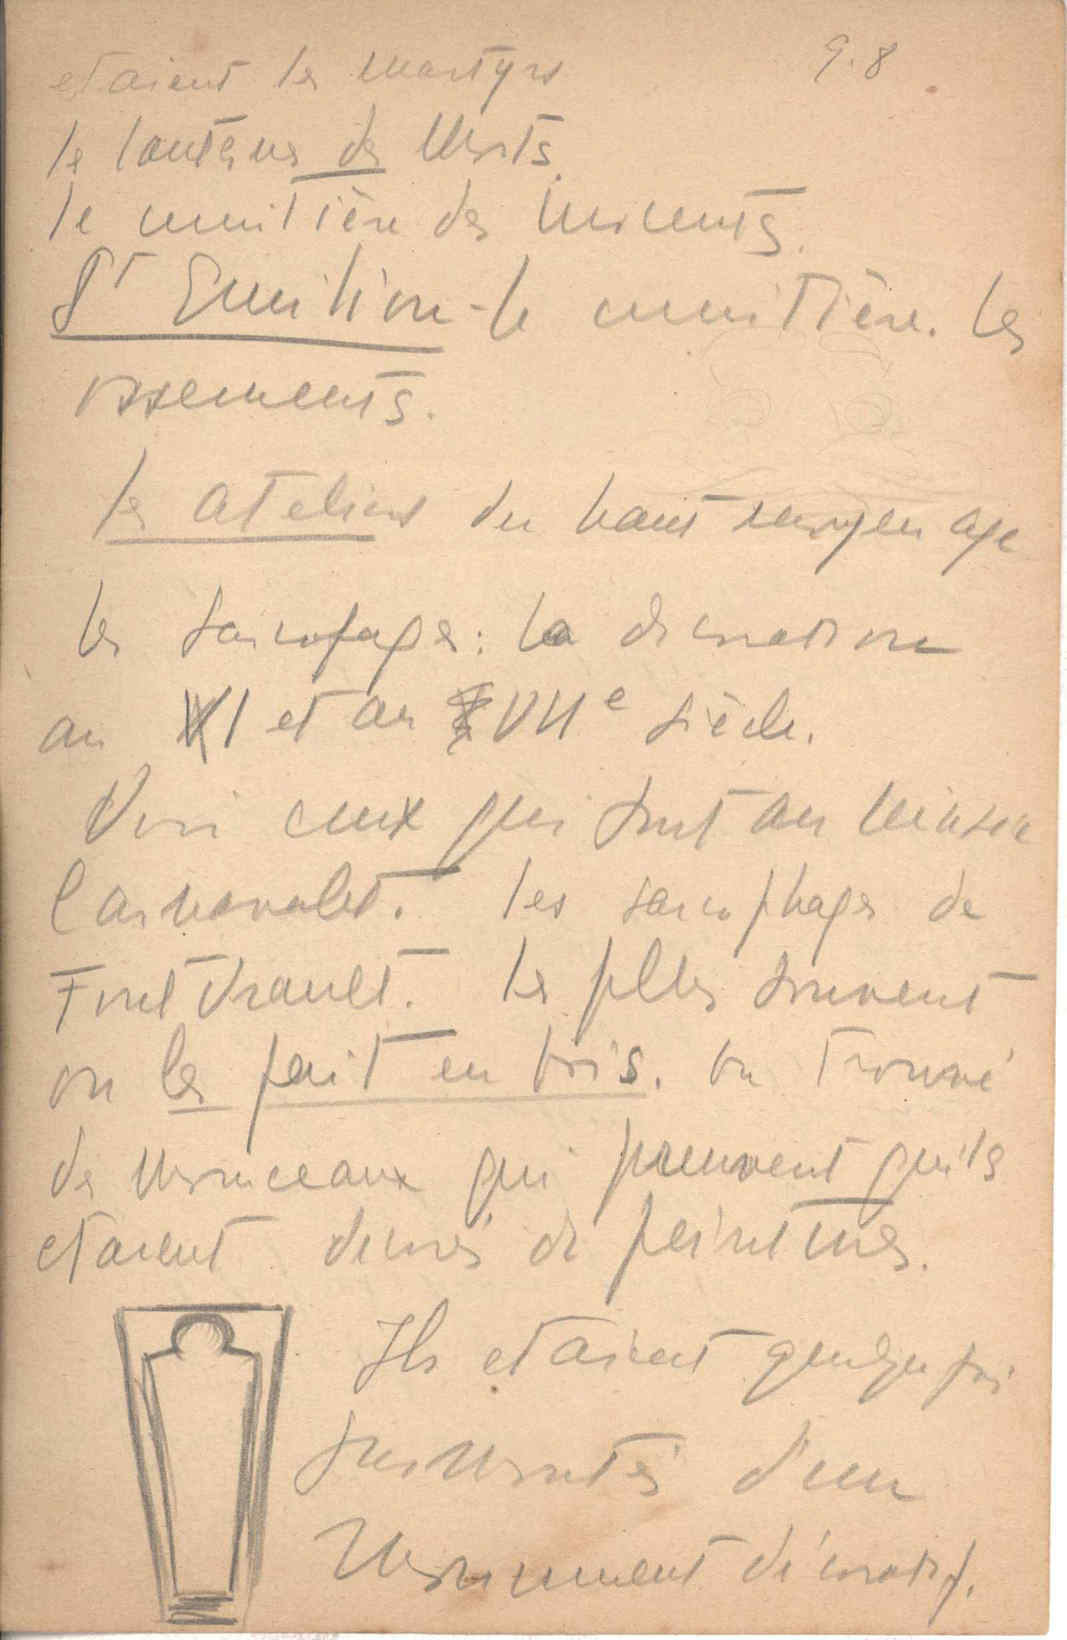 9.8
etaient les martyrs
la lanterne des Morts.
le cimitière des Innocents.
St Emilion - le cimitière. les
ossements.
les ateliers du haut moyen age
les sarcofages : la décoration
au VI et au VIIe siècle.
Voir ceux qui sont au Musée
Carnavalet. les sarcophages de
Fontvrault. le plus souvent
on les fait en bois. on trouvé
des morceaux qui prouvent qu'ils
etaient décorés de peintures.
Ils etaient quelquefois
surmontés d'un
Monument décoratif.